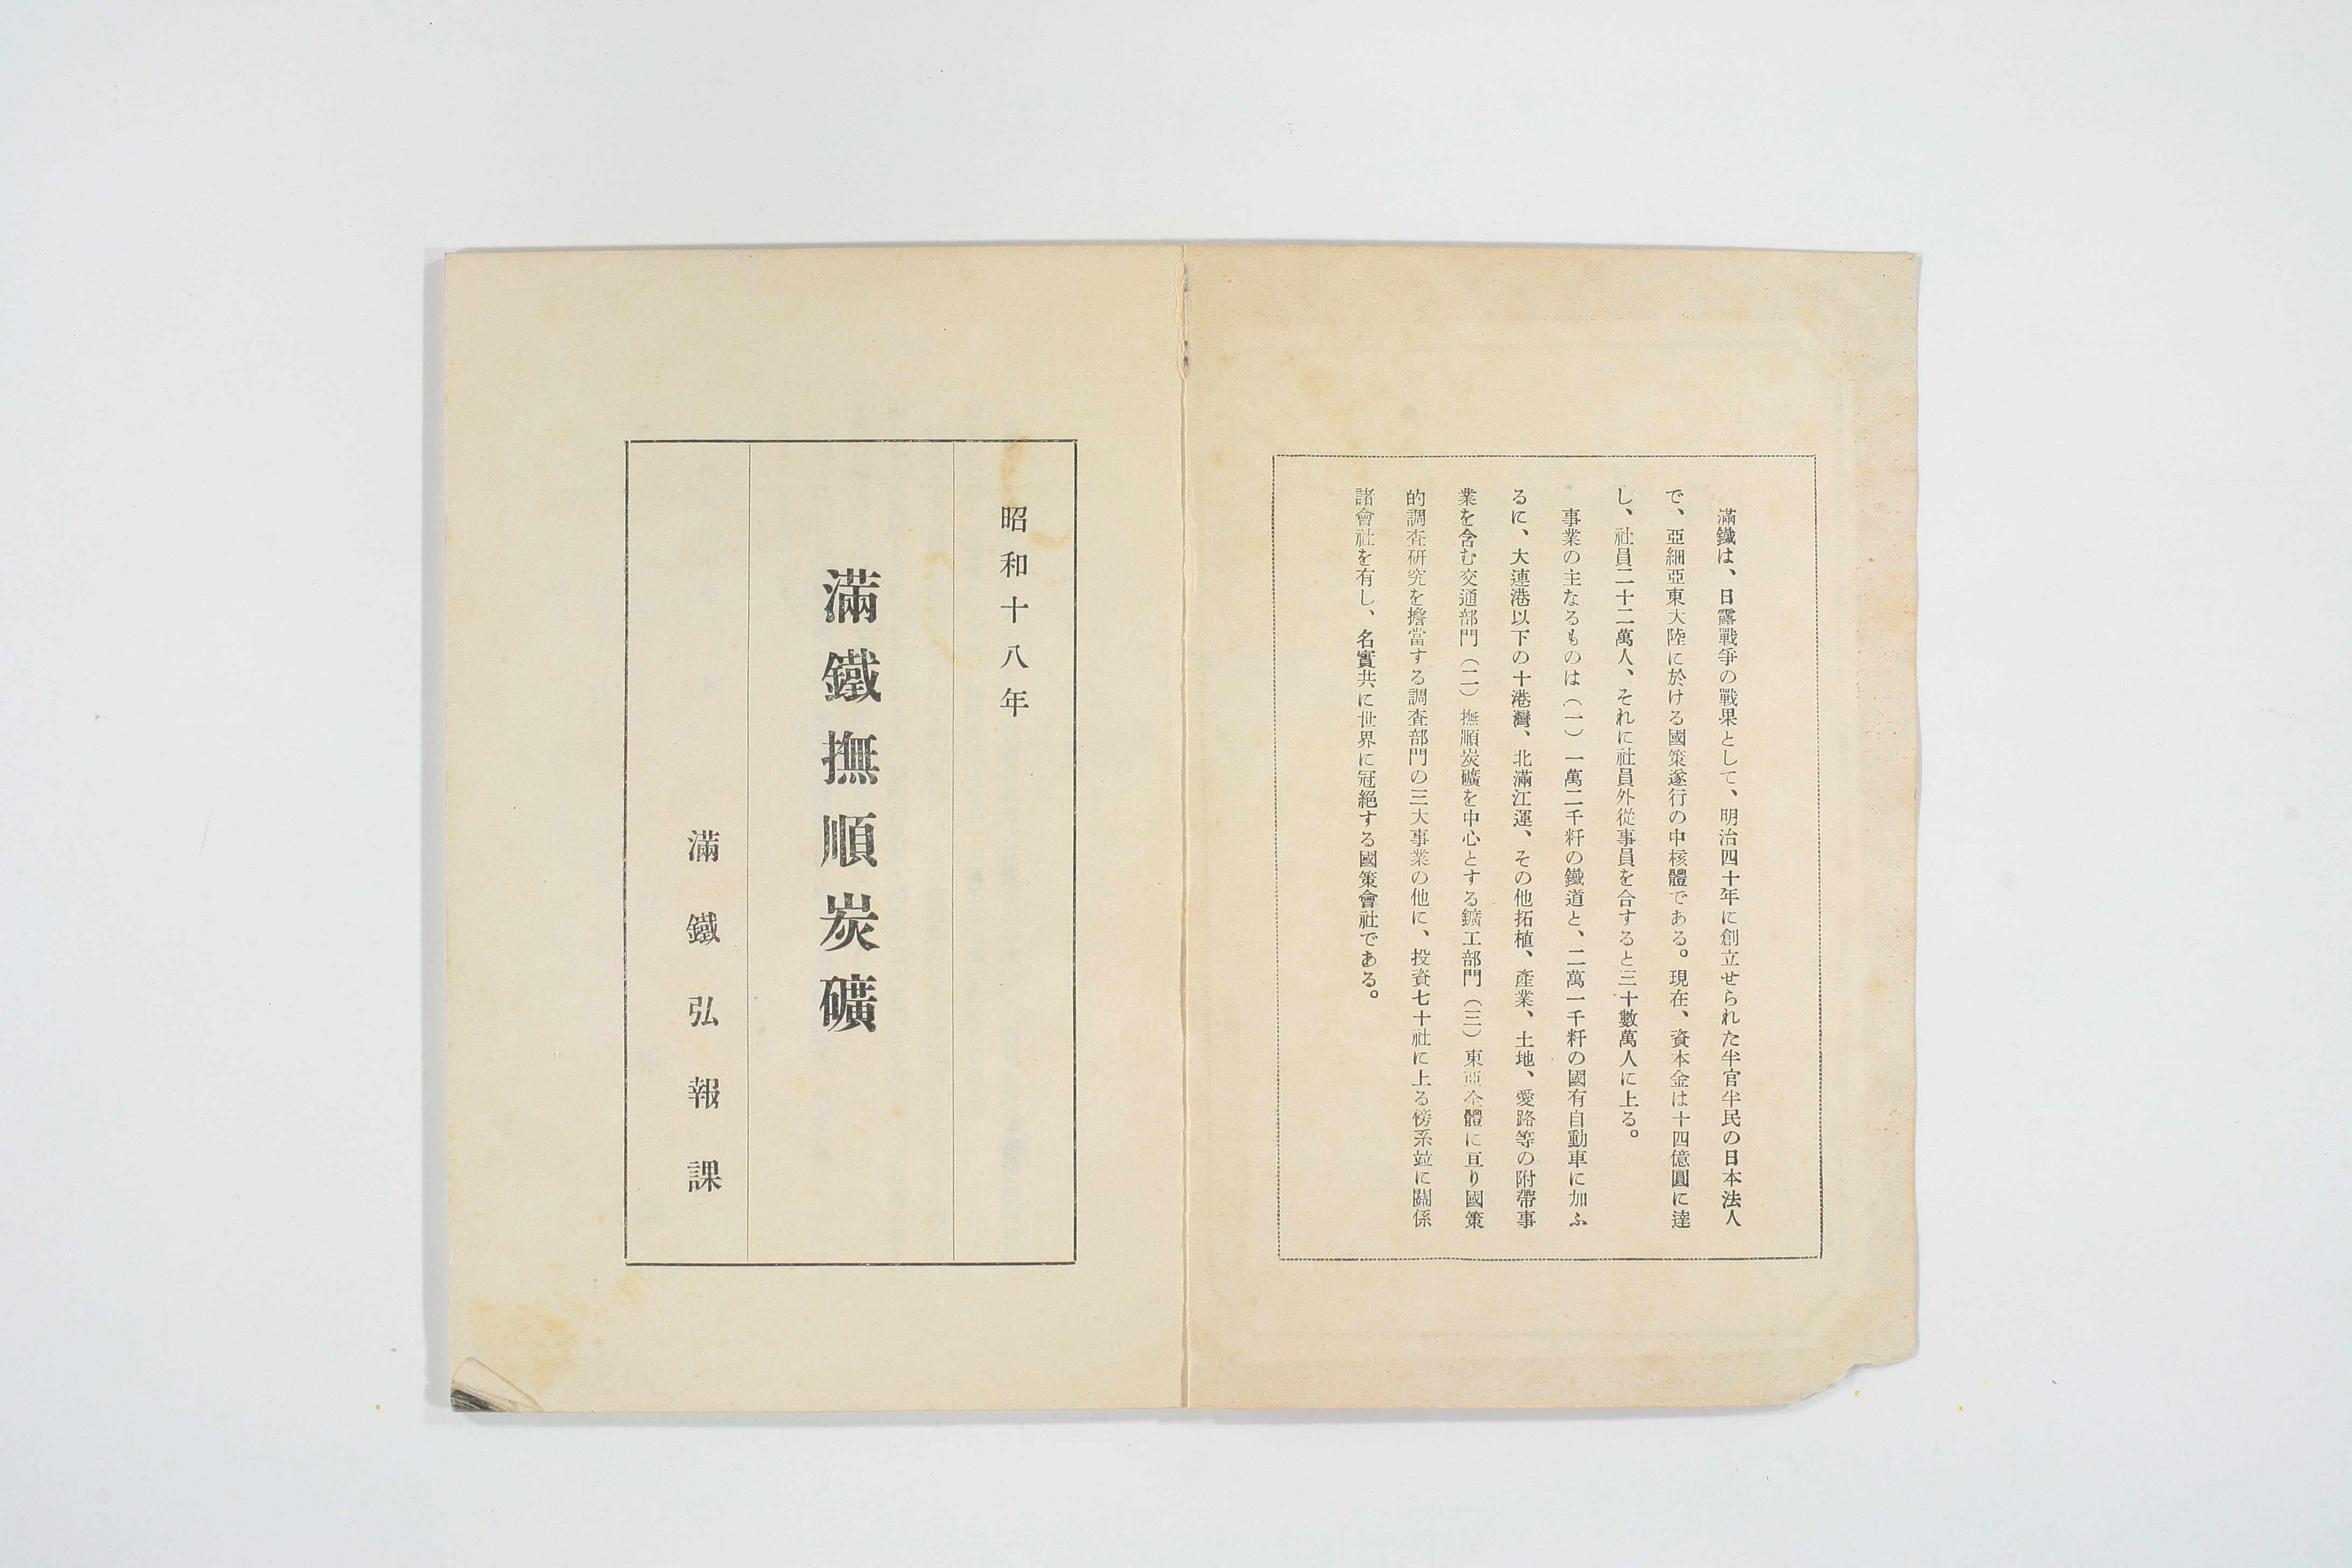 滿鐵は、日露戰爭の戰果として、明治四十年に創立せられた半官半民の日本法人
で、亞細亞東大陸に於ける國策遂行の中核體である。現在、資本金は十四億圓に達
し、社員二十二萬人、それに社員外從事員を合すると三十數萬人に上る。
事業の主なるものは（一）一萬二千粁の鐵道と、二萬一千粁の國有自動車に加ふ
るに、大連港以下の十港灣、北滿江運、その他拓植、產業、土地、愛路等の附帶事
業を含む交通部門（二）撫順炭礦を中心とする鑛工部門（三）東亞全體に亘り國策
的調査研究を擔當する調査部門の三大事業の他に、投資七十社に上る傍系竝に關係
諸會社を有し、名實共に世界に冠絕する國策會社である。
昭和十八年
滿鐵撫順炭礦
滿鐵弘報課